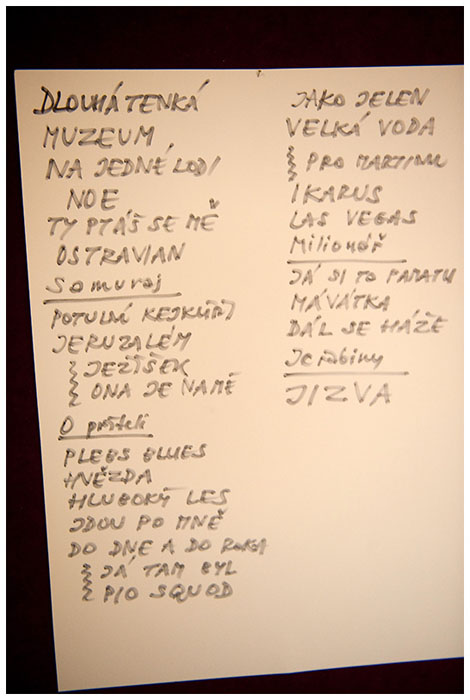 DLOUHÁ TENKÁ
MUZEUM
NA JEDNÉ LODI
NOE
TY PTÁŠ SE MĚ
OSTRAVIAN
Samuraj
POTULNÍ KEJKLÍŘI
JERUZALÉM
JEŽÍŠEK
ONA JE NA MĚ
O příteli
PLEBS BLUES
HNĚZDA
HLUBOKÝ LES
JDOU PO MNĚ
DO DNE A DO ROKA
JÁ TAM BYL
PIO SQUOD
JAKO JELEN
VELKÁ VODA
PRO MARTINU
IKARUS
LAS VEGAS
Milionář
JÁ SI TO PAMATU
MÁVÁTKA
DÁL SE HÁŽE
Jeřabiny
JIZVA